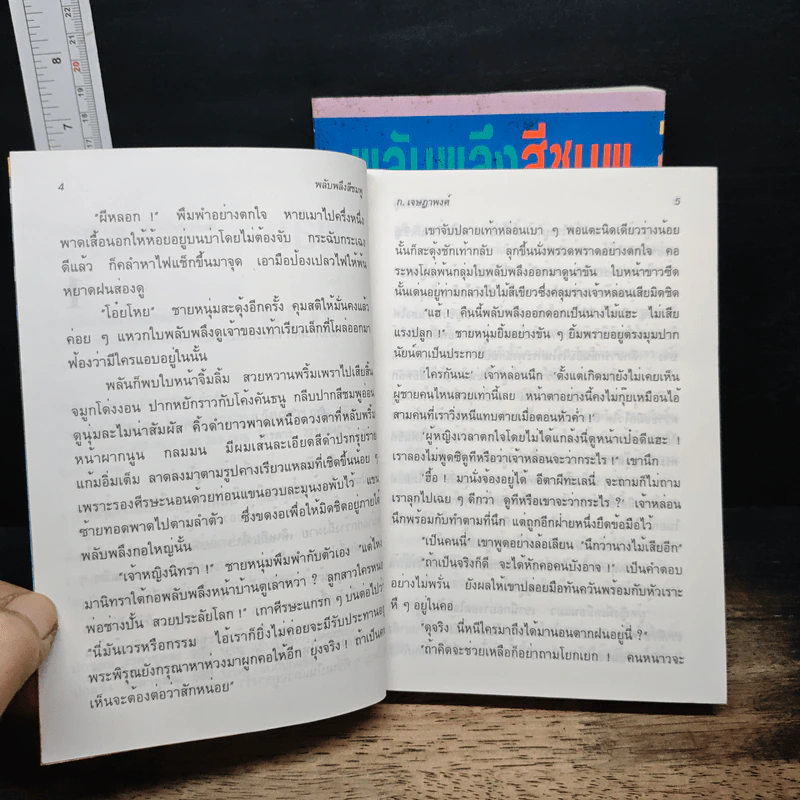 พลับพลึงสีชมพู
4
พลับพลึงสีชมพู
"ผีหลอก !" พึมพำอย่างตกใจ หายเมาไปครึ่งหนึ่ง
พาดเสื้อนอกให้ห้อยอยู่บนบ่าโดยไม่ต้องจับ กระฉับกระเฉง
ดีแล้ว ก็คลำหาไฟแช็กขึ้นมาจุด เอามือป้องเปลวไฟให้พ้น
หยาดฝนส่องดู
"โอ๋ยโหย" ชายหนุ่มสะดุ้งอีกครั้ง คุมสติให้มั่นคงแล้ว
ค่อย ๆ แหวกใบพลับพลึงดูเจ้าของเท้าเรียวเล็กที่โผล่ออกมา
ฟ้องว่ามีใครแอบอยู่ในนั้น
พลันก็พบใบหน้าจิ้มลิ้ม สวยหวานพริ้มเพราไปเสียสิ้น
จมูกโด่งงอน ปากหยักราวกับโค้งคันธนู กลีบปากสีชมพูอ่อน
ดูนุ่มละไมน่าสัมผัส คิ้วดำยาวพาดเหนือดวงตาที่หลับพริ้ม
หน้าผากนูน กลมมน มีผมเส้นละเอียดสีดำปรกรุ่ยร่าย
แก้มอิ่มเต็ม ลาดลงมาตามรูปคางเรียวแหลมที่เชิดขึ้นน้อย ๆ
เพราะรองศีรษะนอนด้วยท่อนแขนอวบละมุนงอพับไว้ แขน
ซ้ายทอดพาดไปตามลำตัว ซึ่งขดงอเพื่อให้มิดชิดอยู่ภายใต้
พลับพลึงกอใหญ่นั้น
"เจ้าหญิงนิทรา !" ชายหนุ่มพึมพำกับตัวเอง "แต่ไหง
มานิทราใต้กอพลับพลึงหน้าบ้านตูเล่าหว่า ? ลูกสาวใครหนอ
พ่อช่างปั้น สวยประลัยโลก !" เกาศีรษะแกรก ๆ บ่นต่อไปว่า
"นี่มันเวรหรือกรรม ไอ้เราก็ยิ่งไม่ค่อยจะมีรับประทานอยู่
พระพิรุณยังกรุณาหาห่วงมาผูกคอให้อีก ยุ่งจริง ! ถ้าเป็นคน
เห็นจะต้องต่อว่าสักหน่อย"
ก. เจษฎาพงศ์
5
เขาจับปลายเท้าหล่อนเบา ๆ พอแตะนิดเดียวร่างน้อย
นั้นก็สะดุ้งชักเท้ากลับ ลุกขึ้นนั่งพรวดพราดอย่างตกใจ คอ
ระหงโผล่พ้นกลุ่มใบพลับพลึงออกมาดูน่าขัน ใบหน้าขาวซีด
นั้นเด่นอยู่ท่ามกลางใบไม้สีเขียวซึ่งคลุมร่างเจ้าหล่อนเสียมิดชิด
"แฮ้ ! คืนนี้พลับพลึงออกดอกเป็นนางไม้แฮะ ไม่เสีย
แรงปลูก !" ชายหนุ่มยิ้มอย่างขัน ๆ ยิ้มพรายอยู่ตรงมุมปาก
นัยน์ตาเป็นประกาย
'ใครกันนะ' เจ้าหล่อนนึก 'ตั้งแต่เกิดมายังไม่เคยเห็น
ผู้ชายคนไหนสวยเท่านี้เลย หน้าตาอย่างนี้คงไม่กุ๊ยเหมือนไอ้
สามคนที่เราวิ่งหนีแทบตายเมื่อตอนหัวค่ำ !'
'ผู้หญิงเวลาตกใจโดยไม่ได้แกล้งนี่ดูหน้าเป๋อดีแฮะ !
เราลองไม่พูดซิดูทีหรือว่าเจ้าหล่อนจะว่ากระไร !' เขานึก
'ฮื้อ ! มานั่งจ้องอยู่ได้ อีตาผีทะเลนี่ จะถามก็ไม่ถาม
เราลุกไปเฉย ๆ ดีกว่า ดูทีหรือเขาจะว่ากระไร ?' เจ้าหล่อน
นึกพร้อมกับทำตามที่นึก แต่ถูกอีกฝ่ายหนึ่งยึดข้อมือไว้
"เป็นคนนี่" เขาพูดอย่างล้อเลียน "นึกว่านางไม้เสียอีก"
"ถ้าเป็นจริงก็ดี จะได้หักคอคนบังอาจ !" เป็นคำตอบ
อย่างไม่พรั่น ยังผลให้เขาปล่อยมือทันควันพร้อมกับหัวเราะ
หึ ๆ อยู่ในคอ
"ดุจริง นี่หนีใครมาถึงได้มานอนตากฝนอยู่นี่ ?"
"ถ้าคิดจะช่วยเหลือก็อย่าถามโยกเยก ! คนหนาวจะ